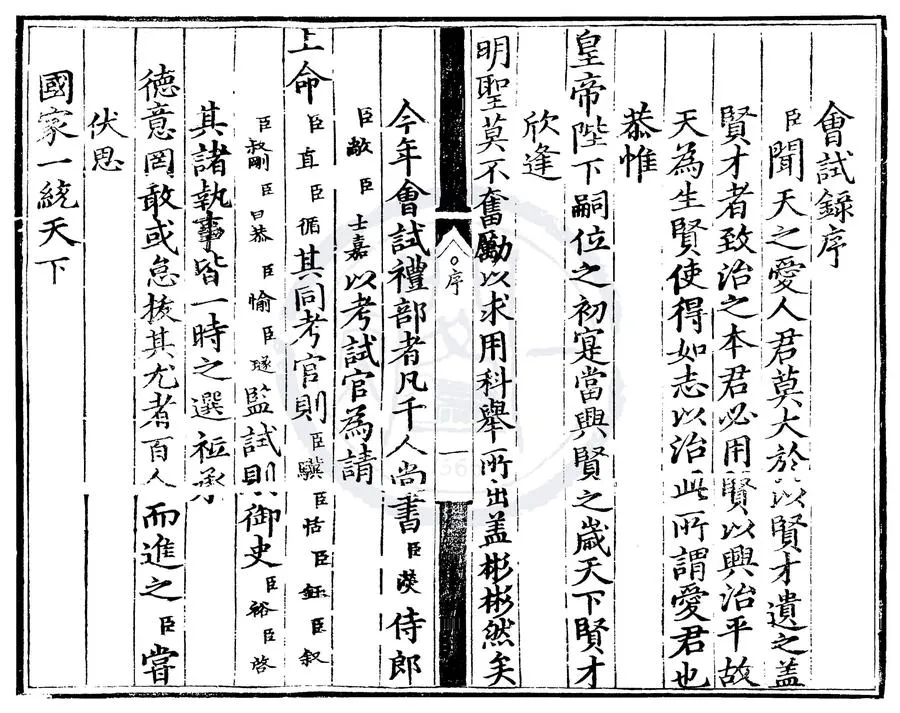 會試錄序
臣聞天之愛人君莫大於以賢才遺之盖
賢才者致治之本君必用賢以興治平故
天為生賢使得如志以治此所謂愛君也
恭惟
皇帝陛下嗣位之初寔當興賢之歲天下賢才
欣逢
明聖莫不奮勵以求用科舉所出盖彬彬然矣
序
一
今年會試禮部者凡千人尚書臣濙侍郎
臣敞臣士嘉以考試官為請
上命臣直臣循其同考官則臣驥臣恬臣臣叙
臣叔剛臣恭臣愉臣監試則御史臣裕臣啓
其諸執事皆一時之選祗承
德意罔敢或怠拔其尤者百人而進之臣嘗
伏思
國家一統天下